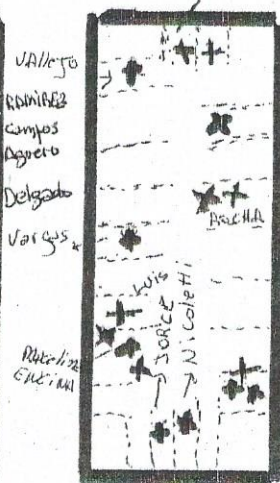 VAllejo
RAMIREZ
Campos
Aguero
Delgado
Vargas
Luis
JORGE
Nicoletti
ENCINA